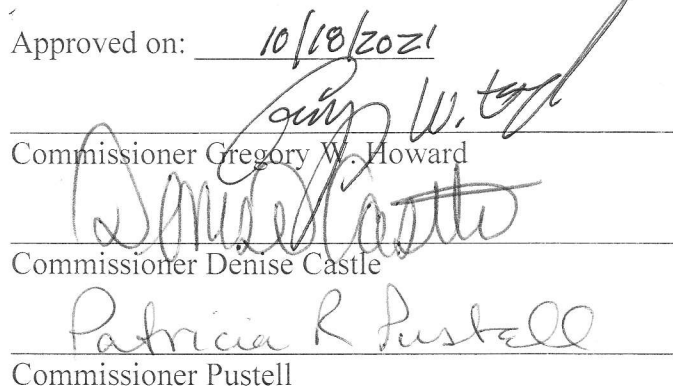 Approved on: 10/18/2021
W.
Commissioner Gregory W. Howard
Denise Castle
Commissioner Denise Castle
Patricia R Pustell
Commissioner Pustell